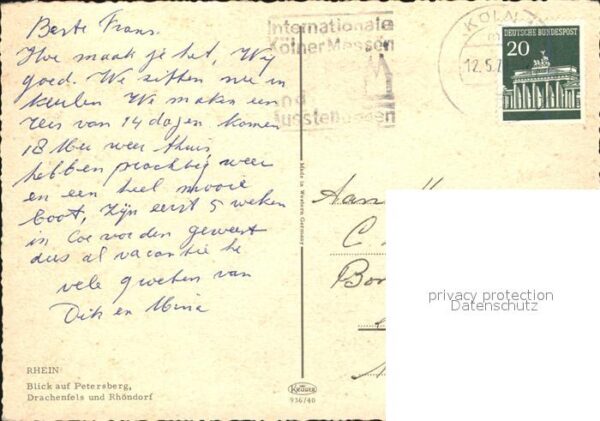 Beste Frans.
Hoe maak je het, Wij
goed. We zitten nu in
keulen We maken een
reis van 14 dagen. komen
18 Mei weer thuis,
hebben prachtig weer
en een heel mooie
boot, zijn eerst 5 weken
in Coevorden geweest
dus al vacantie he
vele groeten van
Dik en Mina
RHEIN
Blick auf Petersberg,
Drachenfels und Rhöndorf
Internationale
Kölner Messen
und
Ausstellungen
KÖLN
12.5.7
DEUTSCHE BUNDESPOST
20
Made in Western Germany
Krüger
936/40
Aan
C
Bor
privacy protection
Datenschutz